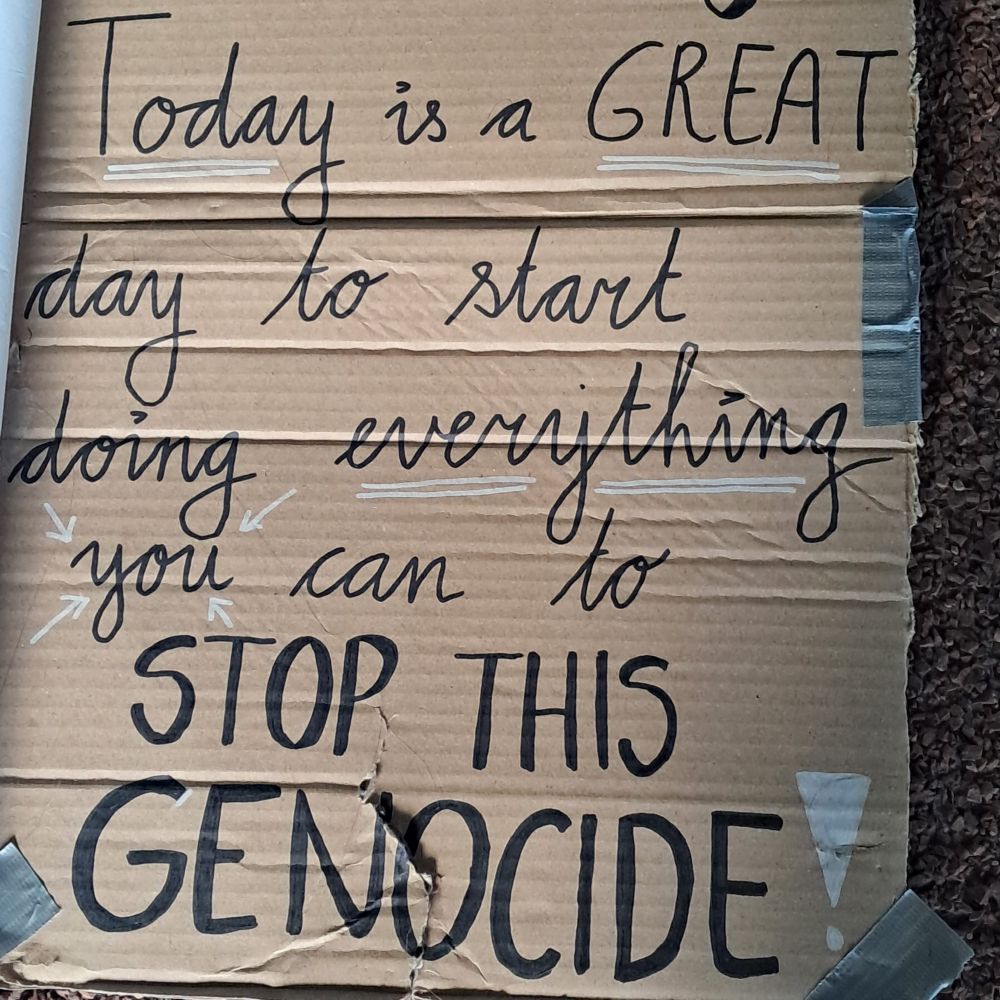 Today is a GREAT
day to start
doing everything
you can to
STOP THIS
GENOCIDE!